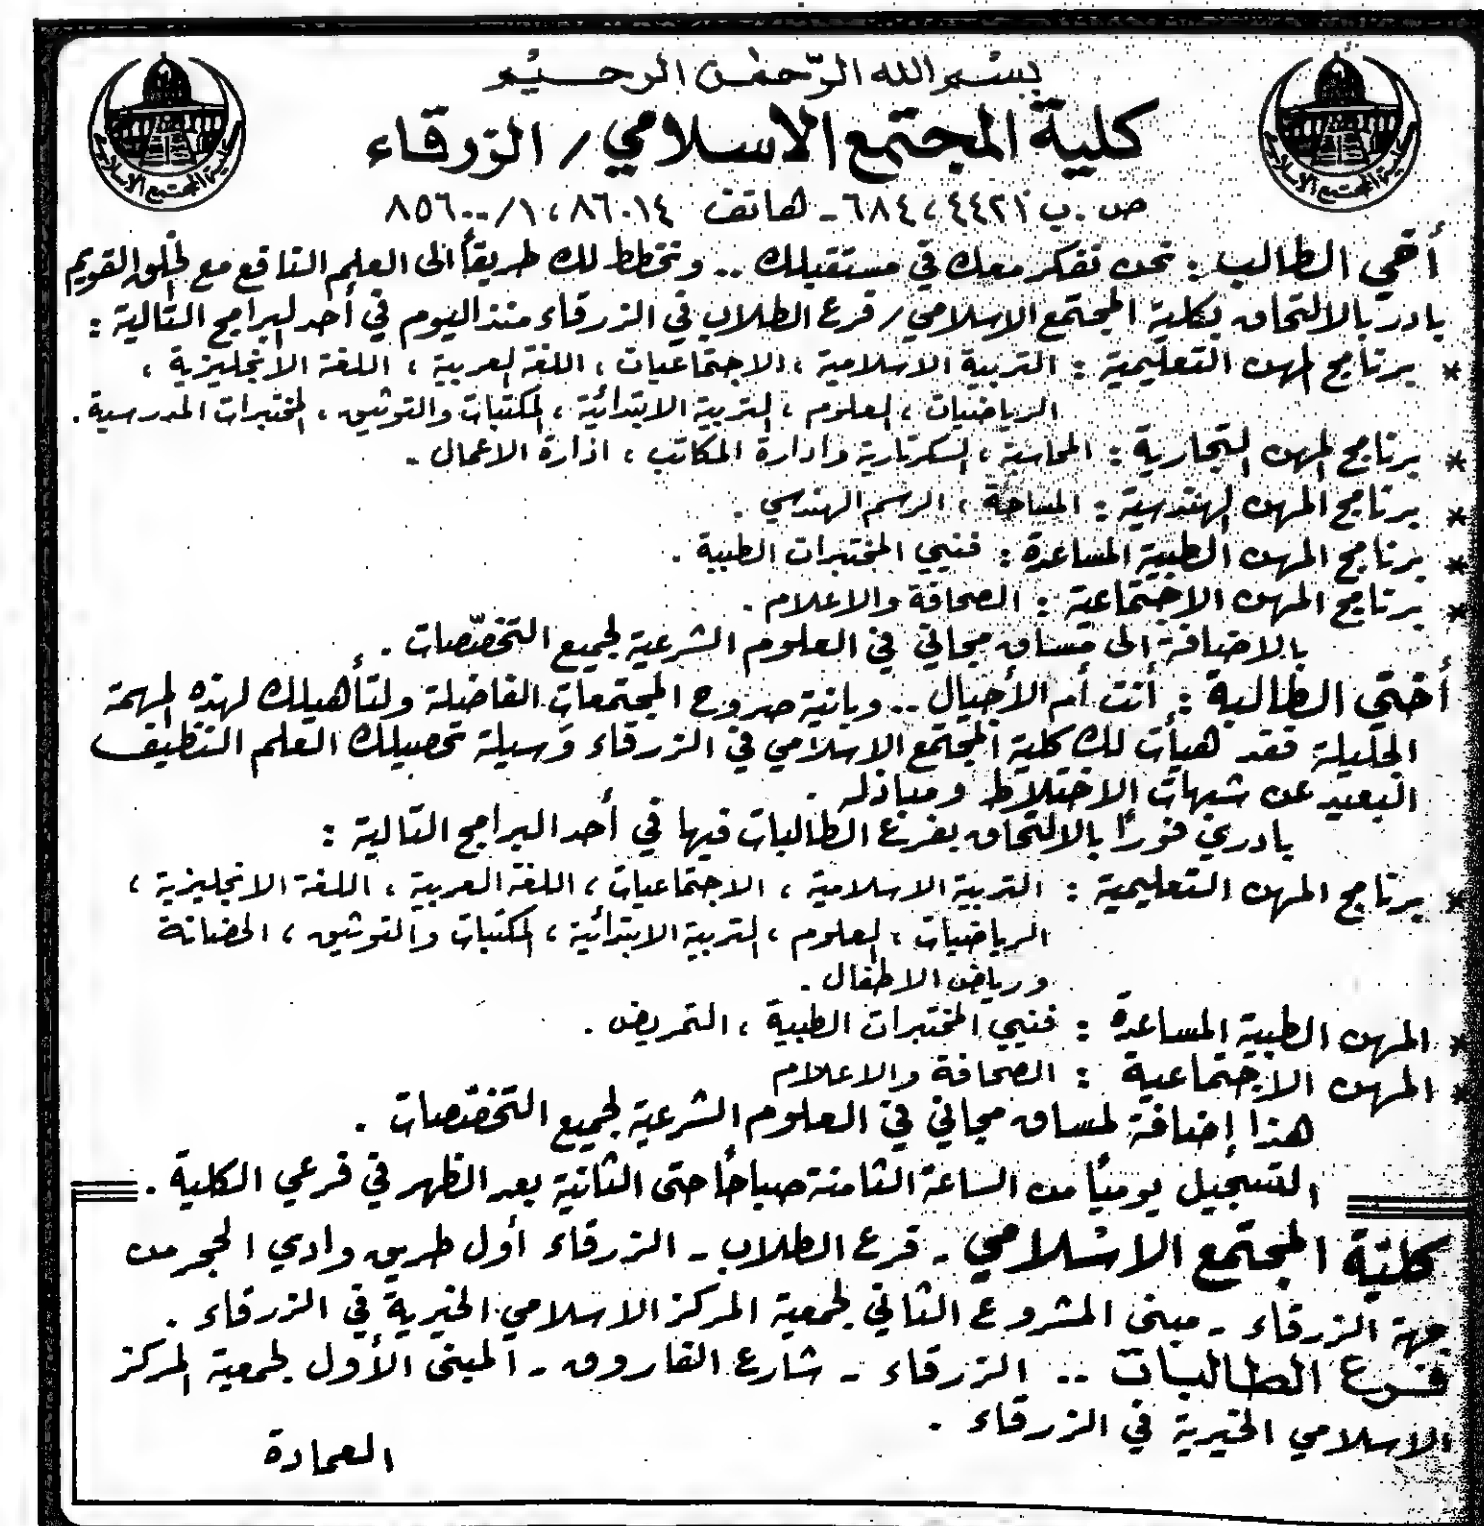 بسم الله الرحمن الرحيم
كلية المجتمع الاسلامي / الزرقاء
ص.ب ٦٨٤،٤٤٢١ - هاتف ٨٥٦٠٠/١،٨٦٠١٤
كلية المجتمع الاسلامية
كلية المجتمع الاسلامية
أخي الطالب : نحن نفكر معك في مستقبلك .. ونخطط لك طريقاً الى العلم النافع مع الخلق القويم
بادر بالالتحاق بكلية المجتمع الاسلامي / فرع الطلاب في الزرقاء منذ اليوم في أحد البرامج التالية :
* برنامج المهن التعليمية : التربية الاسلامية ، الاجتماعيات ، اللغة العربية ، اللغة الانجليزية ،
الرياضيات ، العلوم ، التربية الابتدائية ، المكتبات والتوثيق ، المختبرات المدرسية .
* برنامج المهن التجارية : المحاسبة ، السكرتارية وادارة المكاتب ، ادارة الاعمال .
* برنامج المهن الهندسية : المساحة ، الرسم الهندسي .
* برنامج المهن الطبية المساعدة : فنيي المختبرات الطبية .
* برنامج المهن الاجتماعية : الصحافة والاعلام .
بالاضافة الى مساق مجاني في العلوم الشرعية لجميع التخصّصات .
أختي الطالبة : أنت أم الأجيال .. وبانية صروح المجتمعات الفاضلة ولتأهيلك لهذه المهمة
الجليلة فقد هيأت لك كلية المجتمع الاسلامي في الزرقاء وسيلة تحصيلك العلم النظيف
البعيد عن شبهات الاختلاط ومباذله .
بادري فوراً بالالتحاق بفرع الطالبات فيها في أحد البرامج التالية :
* برنامج المهن التعليمية : التربية الاسلامية ، الاجتماعيات ، اللغة العربية ، اللغة الانجليزية ،
الرياضيات ، العلوم ، التربية الابتدائية ، المكتبات والتوثيق ، الحضانة
ورياض الاطفال .
* المهن الطبية المساعدة : فنيي المختبرات الطبية ، التمريض .
* المهن الاجتماعية : الصحافة والاعلام
هذا إضافة لمساق مجاني في العلوم الشرعية لجميع التخصّصات .
التسجيل يومياً من الساعة الثامنة صباحاً حتى الثانية بعد الظهر في فرعي الكلية .
كلية المجتمع الاسلامي - فرع الطلاب - الزرقاء أول طريق وادي الحجر من
جهة الزرقاء - مبنى المشروع الثاني لجمعية المركز الاسلامي الخيرية في الزرقاء .
فرع الطالبات .. الزرقاء - شارع الفاروق - المبنى الأول لجمعية المركز
الاسلامي الخيرية في الزرقاء .
العمادة